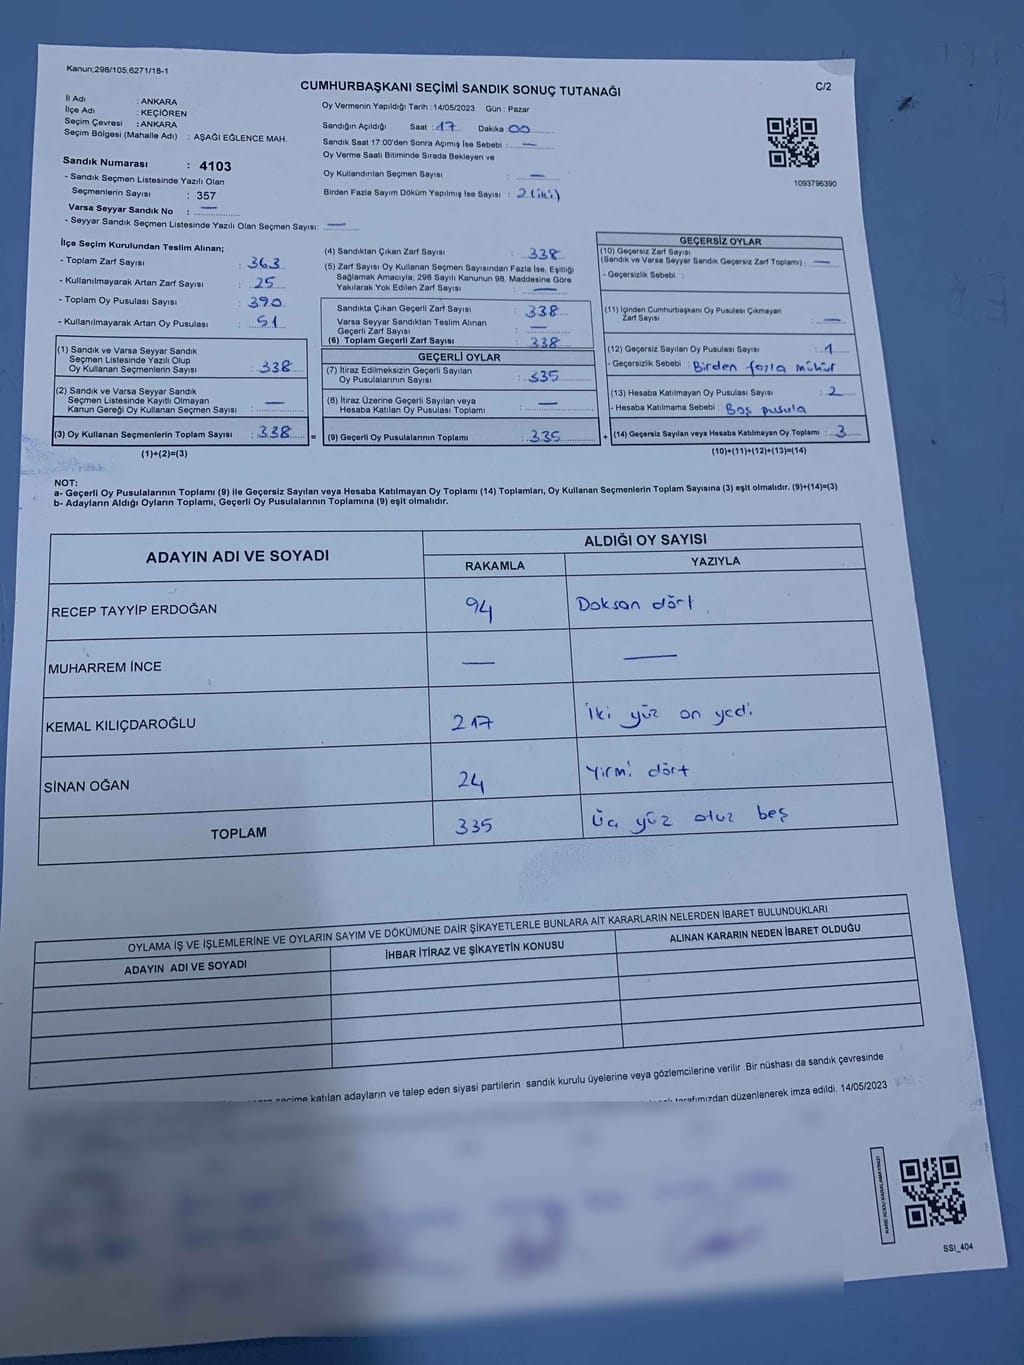 Kanun;298/105;6271/18-1
CUMHURBAŞKANI SEÇİMİ SANDIK SONUÇ TUTANAĞI
C/2
İl Adı : ANKARA
İlçe Adı : KEÇİÖREN
Seçim Çevresi : ANKARA
Seçim Bölgesi (Mahalle Adı) : AŞAĞI EĞLENCE MAH.
Sandık Numarası : 4103
- Sandık Seçmen Listesinde Yazılı Olan
Seçmenlerin Sayısı : 357
Varsa Seyyar Sandık No : —
- Seyyar Sandık Seçmen Listesinde Yazılı Olan Seçmen Sayısı: —
Oy Vermenin Yapıldığı Tarih : 14/05/2023 Gün : Pazar
Sandığın Açıldığı Saat : 17 Dakika : 00
Sandık Saat 17:00'den Sonra Açımış İse Sebebi : —
Oy Verme Saati Bitiminde Sırada Bekleyen ve
Oy Kullandırılan Seçmen Sayısı : —
Birden Fazla Sayım Döküm Yapılmış İse Sayısı : 2 (iki)
1093796390
İlçe Seçim Kurulundan Teslim Alınan;
- Toplam Zarf Sayısı : 363
- Kullanılmayarak Artan Zarf Sayısı : 25
- Toplam Oy Pusulası Sayısı : 390
- Kullanılmayarak Artan Oy Pusulası : 51
(1) Sandık ve Varsa Seyyar Sandık
Seçmen Listesinde Yazılı Olup
Oy Kullanan Seçmenlerin Sayısı : 338
(2) Sandık ve Varsa Seyyar Sandık
Seçmen Listesinde Kayıtlı Olmayan
Kanun Gereği Oy Kullanan Seçmen Sayısı : —
(3) Oy Kullanan Seçmenlerin Toplam Sayısı : 338
(1)+(2)=(3)
(4) Sandıktan Çıkan Zarf Sayısı : 338
(5) Zarf Sayısı Oy Kullanan Seçmen Sayısından Fazla İse, Eşitliği
Sağlamak Amacıyla; 298 Sayılı Kanunun 98. Maddesine Göre
Yakılarak Yok Edilen Zarf Sayısı : —
Sandıkta Çıkan Geçerli Zarf Sayısı : 338
Varsa Seyyar Sandıktan Teslim Alınan
Geçerli Zarf Sayısı : —
(6) Toplam Geçerli Zarf Sayısı : 338
GEÇERLİ OYLAR
(7) İtiraz Edilmeksizin Geçerli Sayılan
Oy Pusulalarının Sayısı : 335
(8) İtiraz Üzerine Geçerli Sayılan veya
Hesaba Katılan Oy Pusulası Toplamı : —
= (9) Geçerli Oy Pusulalarının Toplamı : 335
GEÇERSİZ OYLAR
(10) Geçersiz Zarf Sayısı
(Sandık ve Varsa Seyyar Sandık Geçersiz Zarf Toplamı) : —
- Geçersizlik Sebebi :
(11) İçinden Cumhurbaşkanı Oy Pusulası Çıkmayan
Zarf Sayısı : —
(12) Geçersiz Sayılan Oy Pusulası Sayısı : 1
- Geçersizlik Sebebi : Birden fazla mühür
(13) Hesaba Katılmayan Oy Pusulası Sayısı : 2
- Hesaba Katılmama Sebebi : Boş pusula
+ (14) Geçersiz Sayılan veya Hesaba Katılmayan Oy Toplamı : 3
(10)+(11)+(12)+(13)=(14)
NOT:
a- Geçerli Oy Pusulalarının Toplamı (9) ile Geçersiz Sayılan veya Hesaba Katılmayan Oy Toplamı (14) Toplamları, Oy Kullanan Seçmenlerin Toplam Sayısına (3) eşit olmalıdır. (9)+(14)=(3)
b- Adayların Aldığı Oyların Toplamı, Geçerli Oy Pusulalarının Toplamına (9) eşit olmalıdır.
ADAYIN ADI VE SOYADI
ALDIĞI OY SAYISI
RAKAMLA YAZIYLA
RECEP TAYYİP ERDOĞAN 94 Doksan dört
MUHARREM İNCE — —
KEMAL KILIÇDAROĞLU 217 İki yüz on yedi
SİNAN OĞAN 24 Yirmi dört
TOPLAM 335 Üç yüz otuz beş
OYLAMA İŞ VE İŞLEMLERİNE VE OYLARIN SAYIM VE DÖKÜMÜNE DAİR ŞİKAYETLERLE BUNLARA AİT KARARLARIN NELERDEN İBARET BULUNDUKLARI
ADAYIN ADI VE SOYADI İHBAR İTİRAZ VE ŞİKAYETİN KONUSU ALINAN KARARIN NEDEN İBARET OLDUĞU
seçime katılan adayların ve talep eden siyasi partilerin sandık kurulu üyelerine veya gözlemcilerine verilir .Bir nüshası da sandık çevresinde
tarafımızdan düzenlenerek imza edildi. 14/05/2023
SSI_404